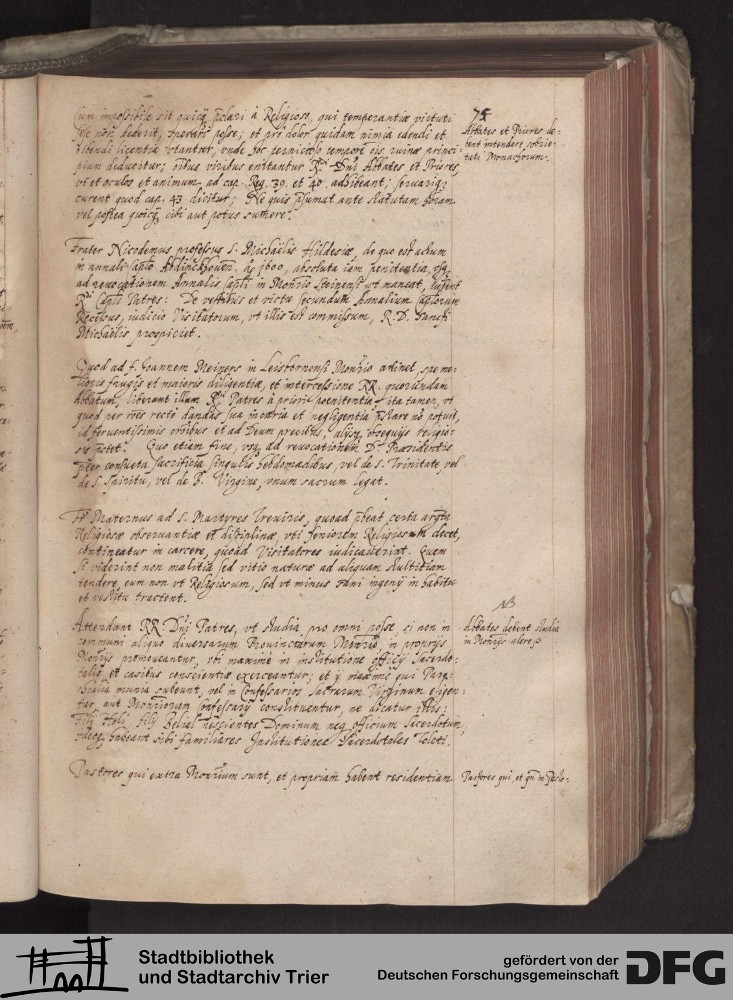 74
Cum impossibile sit quicq̃ p̃clari à Religioso, qui temperantiæ virtuti
sese non dederit, sperari posse; et prô dolor quidam nimiâ edendi et
bibendi licentia utantur, unde hoc pernicioso tempore ois ruinæ princi-
pium deducitur; oibus viribus enitantur Rdi Dñi Abbates et Priores,
ut et oculos et animum ad cap. Reg. 39. et 40. adhibeant; servariq;
curent quod cap. 43 dicitur; Ne quis p̃sumat ante statutam horam
vel postea quicq̃ cibi aut potus sumere.
Abbates et Priores de-
bent intendere sobrie-
tati Monachorum.
Frater Nicodemus professus S. Michaëlis Hildesiæ, de quo est actum
in annali Capto Abdinckhoven. aº 1600, absoluta iam penitentia, usq;
ad revocationem Annalis Capli in Monrio Steinensi ut maneat,
Rdi Capli Patres: De vestibus et victu secundum Annalium Caplorum
Recessus, iudicio Visitatorum, ut illis est commissum, R. D. Sancti
Michaëlis prospiciet.
Quod ad f. Joannem Meiners in Leisbornensi Monrio attinet, spe me-
lioris frugis et maioris diligentiæ, et intercessione RR. quorundam
Abbatum, liberant illum Rdi Patres à priori poenitentia, ita tamen, ut
quod per rões rectè dandas sua incuria et negligentia p̃stare nõ potuit,
id ferventissimis orõibus et ad Deum precibus, alijsq; obsequijs religio-
sis p̃stet. Quo etiam fine, usq; ad revocationem D. Præsidentis
p̃ter consueta sacrificia singulis hebdomadibus, vel de S. Trinitate, vel
de S. Spiritu, vel de B. Virgine, unum sacrum legat.
Fr̃ Maternus ad S. Martyres Treviris, quoad p̃beat certa argta
Religiosæ observantiæ et disciplinæ, uti seniorem Religiosum decet,
contineatur in carcere, quoad Visitatores iudicaverint. Quem
si viderint non malitia sed vitio naturæ ad aliquam stultitiam
tendere, eum non ut Religiosum, sed ut minus sani ingenij in habitu
et vestitu tractent.
Attendant RR Dñi Patres, ut studia pro omni posse, si non in
communi aliquo diversarum Provinciarum Monrio, in proprijs
Monrijs promoveantur, uti maximè in institutione officij Sacerdo-
talis et casibus conscientiæ exerceantur; et ij maximè qui Paro-
chialia munia subeunt, vel in Confessarios Sacrarum Virginum eligun-
tur, aut Monriorum Confessarij constituuntur, ne dicatur illis;
Filij Heli, filij Belial nescientes Dominum neq; officium Sacerdotum,
Adeoq; habeant sibi familiares Institutiones Sacerdotales Toleti.
NB
Abbates debent studia
in Monrijs alere
Pastores qui extra Monrium sunt, et propriam habent residentiam
Pastores qui, et
Stadtbibliothek
und Stadtarchiv Trier
gefördert von der
Deutschen Forschungsgemeinschaft
DFG